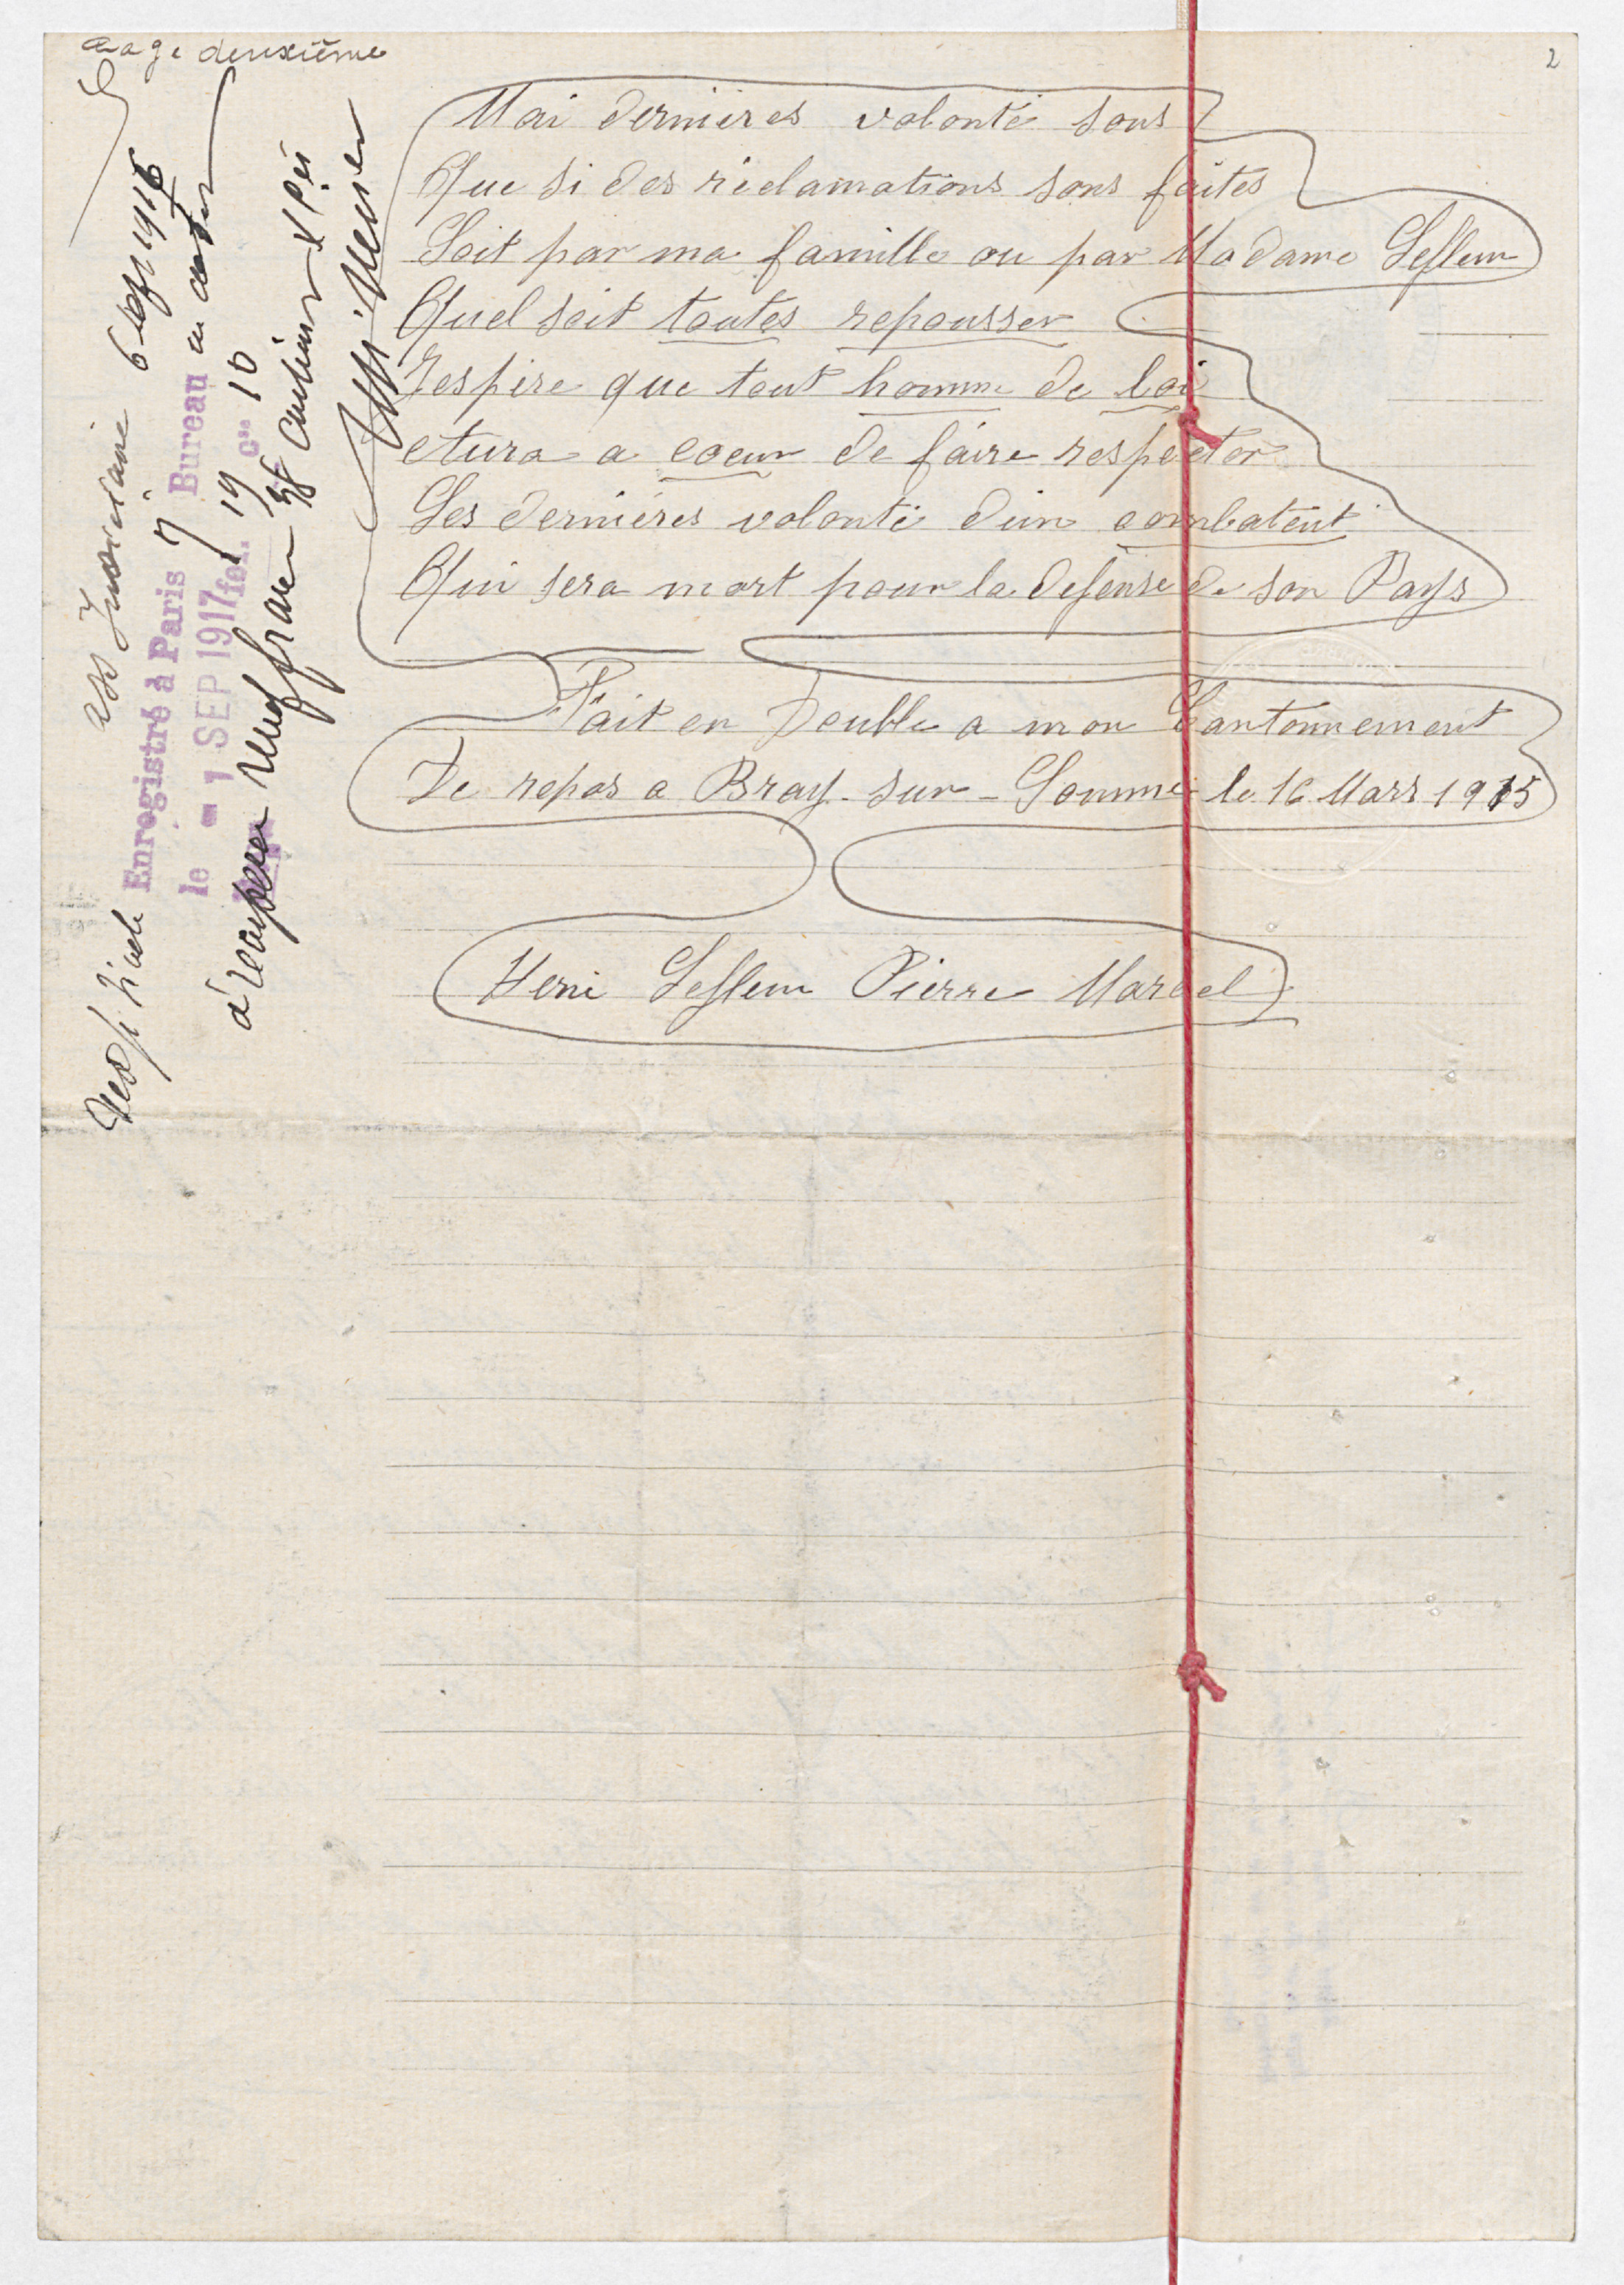 page deuxième
2
Mai dernières volonté sons
Que si des réclamations sons faites
Soit par ma famille ou par Madame Lefleur
Quel soit toutes repousser
J'espère que tout homme de loi
etura a coeur de faire respecter
Les dernières volonté d'un combatent
Qui sera mort pour la defense de son Pays
Fait en Double a mon Cantonnement
De repos a Bray-sur-Somme le 16 Mars 1915
Henri Lefleur Pierre Marcel
Enregistré à Paris 7 Bureau
le - 1 SEP 1917 fol. 19 Cse 10
neuf francs 38 centimes